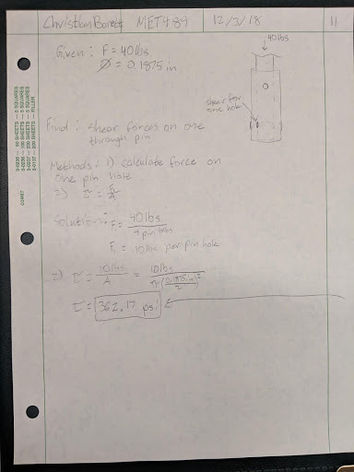 Christian Barrett MET 489 12/3/18 11
40lbs
Given: F = 40lbs
Ø = 0.1875 in
shear for
one hole
Find: shear forces on one
through pin
Methods: 1) calculate force on
one pin hole
2) τ = F/A
Solution: F₁ = 40lbs / 4 pin holes
F₁ = 10lbs per pin hole
2) τ = 10lbs / A = 10lbs / π(0.1875in / 2)²
τ = 362.17 psi